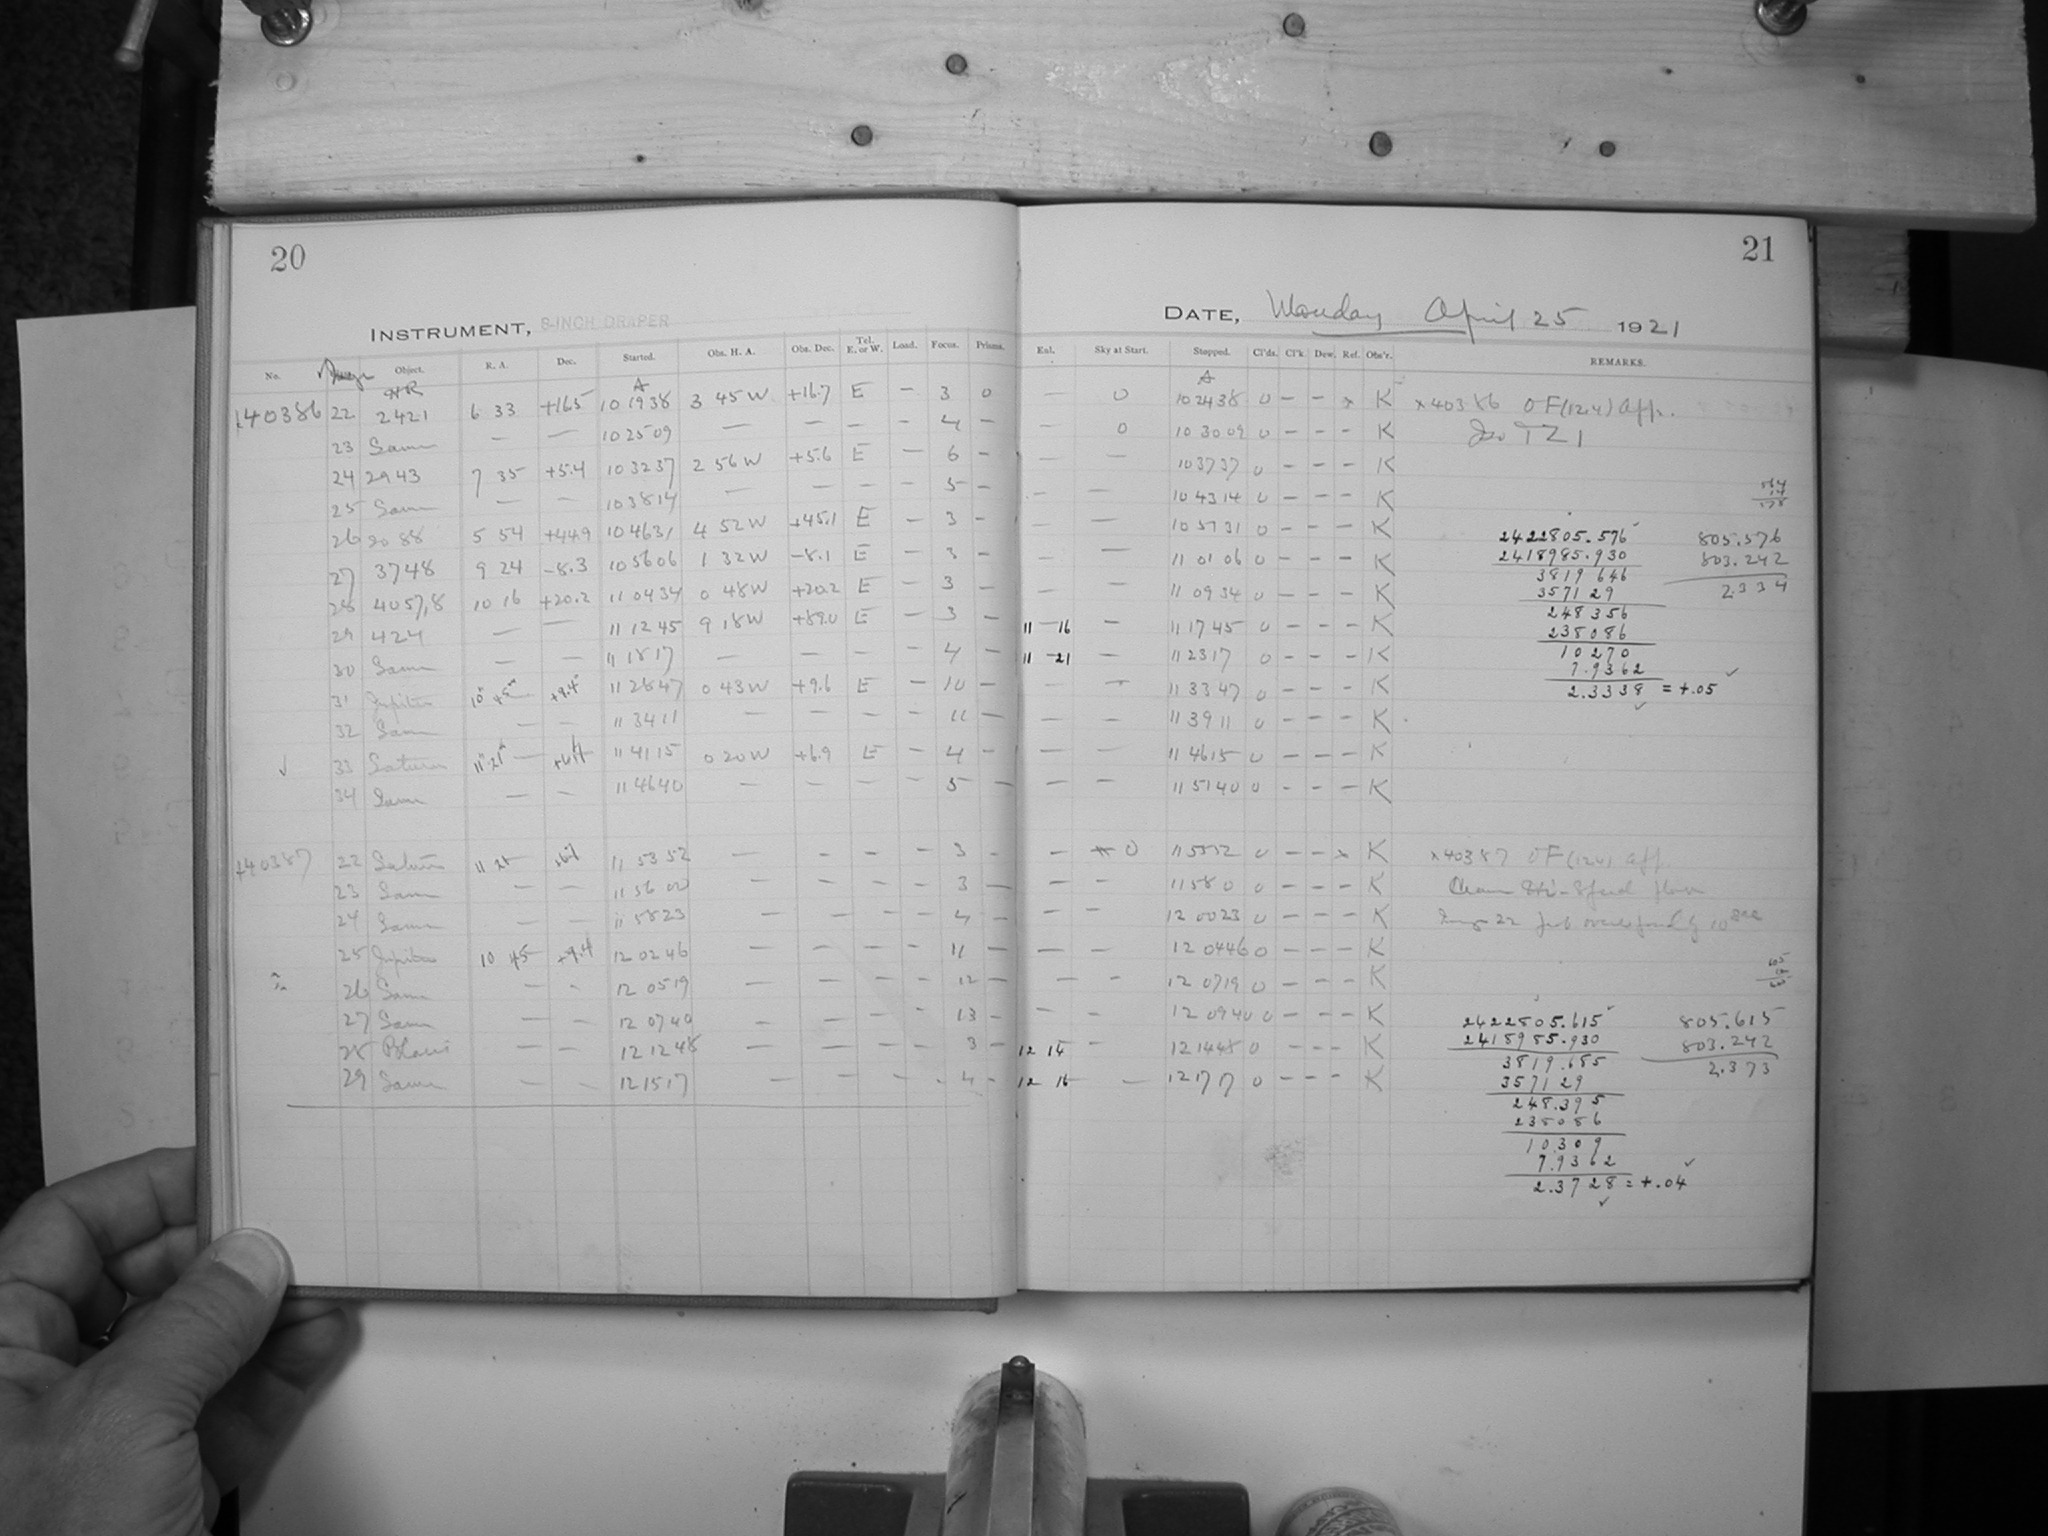 20
INSTRUMENT, 8-INCH DRAPER
No. Object. R. A. Dec. Started. Obs. H. A. Obs. Dec. Tel. E. or W. Load. Focus. Prisms.
HR A
140386 22 2421 6 33 +16.5 10 19 38 3 45 W +16.7 E — 3 0
23 Same — — 10 25 09 — — — — 4 —
24 2943 7 35 +5.4 10 32 37 2 56 W +5.6 E — 6 —
25 Same — — 10 38 14 — — — — 5 —
26 2088 5 54 +44.9 10 46 31 4 52 W +45.1 E — 3 —
27 3748 9 24 -8.3 10 56 06 1 32 W -8.1 E — 3 —
28 4057,8 10 16 +20.2 11 04 34 0 48 W +20.2 E — 3 —
29 424 — — 11 12 45 9 18 W +89.0 E — 3 —
30 Same — — 11 18 17 — — — — 4 —
31 Jupiter 10 45 +9.4 11 28 47 0 43 W +9.6 E — 10 —
32 Same — — 11 34 11 — — — — 11 —
33 Saturn 11 41 15 0 20 W +6.9 E — 4 —
34 Same — — 11 46 40 — — — — 5 —
140387 22 Saturn 11 53 52 — — — — 3 —
23 Same — — 11 56 00 — — — — 3 —
24 Same — — 11 58 23 — — — — 4 —
25 Jupiter 10 45 +9.4 12 02 46 — — — — 11 —
26 Same — — 12 05 19 — — — — 12 —
27 Same — — 12 07 40 — — — — 13 —
28 12 12 48 — — — — 3 —
29 Same — — 12 15 17 — — — — 4 —
21
DATE, Monday April 25 1921
Exl. Sky at Start. Stopped. Cl'ds. Cl'k. Dew. Ref. Obs'r. REMARKS.
A
— 0 10 24 38 0 — — x K x40386 OF(1224) app.
— 0 10 30 09 0 — — — K
— — 10 37 37 0 — — — K
— — 10 43 14 0 — — — K
— — 10 51 31 0 — — — K
— — 11 01 06 0 — — — K
— — 11 09 34 0 — — — K
11 16 — 11 17 45 0 — — — K
11 21 — 11 23 17 0 — — — K
— — 11 33 47 0 — — — K
— — 11 39 11 0 — — — K
— — 11 46 15 0 — — — K
— — 11 51 40 0 — — — K
2422805.576 805.576
2418985.930 803.242
3819 646 2.334
357129
248356
238086
10270
7.9362
2.3338 = +.05
— 0 0 — — x K x40387 OF(1224) app.
— — 11 58 0 0 — — — K
— — 12 00 23 0 — — — K
— — 12 04 46 0 — — — K
— — 12 07 19 0 — — — K
— — 12 09 40 0 — — — K
12 14 12 14 48 0 — — — K
12 16 — 12 17 17 0 — — — K
2422805.615 805.615
2418985.930 803.242
3819.685 2.373
357129
248.395
238086
10309
7.9362
2.3728 = +.04